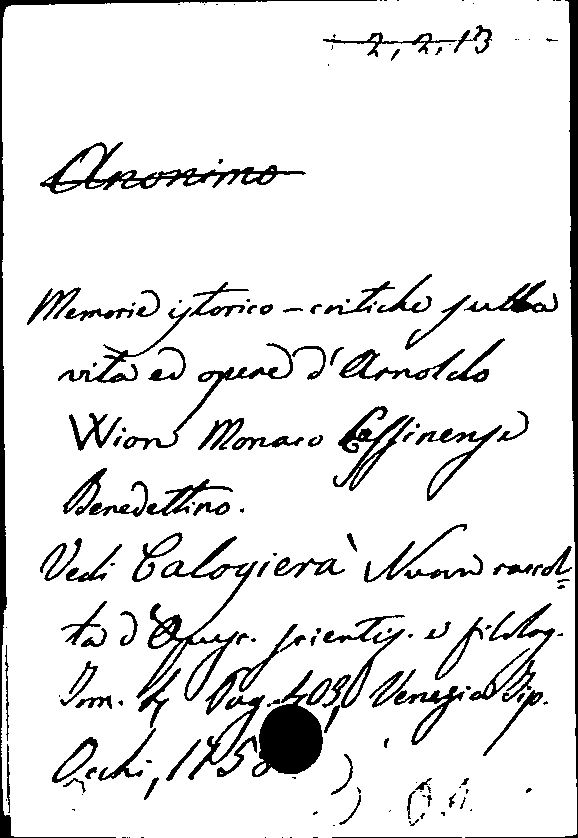 2, 2, 13
Anonimo
Memorie istorico-critiche sulla
vita ed opere d'Arnoldo
Wion Monaco Cassinense
Benedettino.
Vedi Calogierà Nuova raccol=
ta d'Opusc. scientif. e filolog.
Tom. 4, Pag. 403, Venezia Tip.
Occhi, 1758